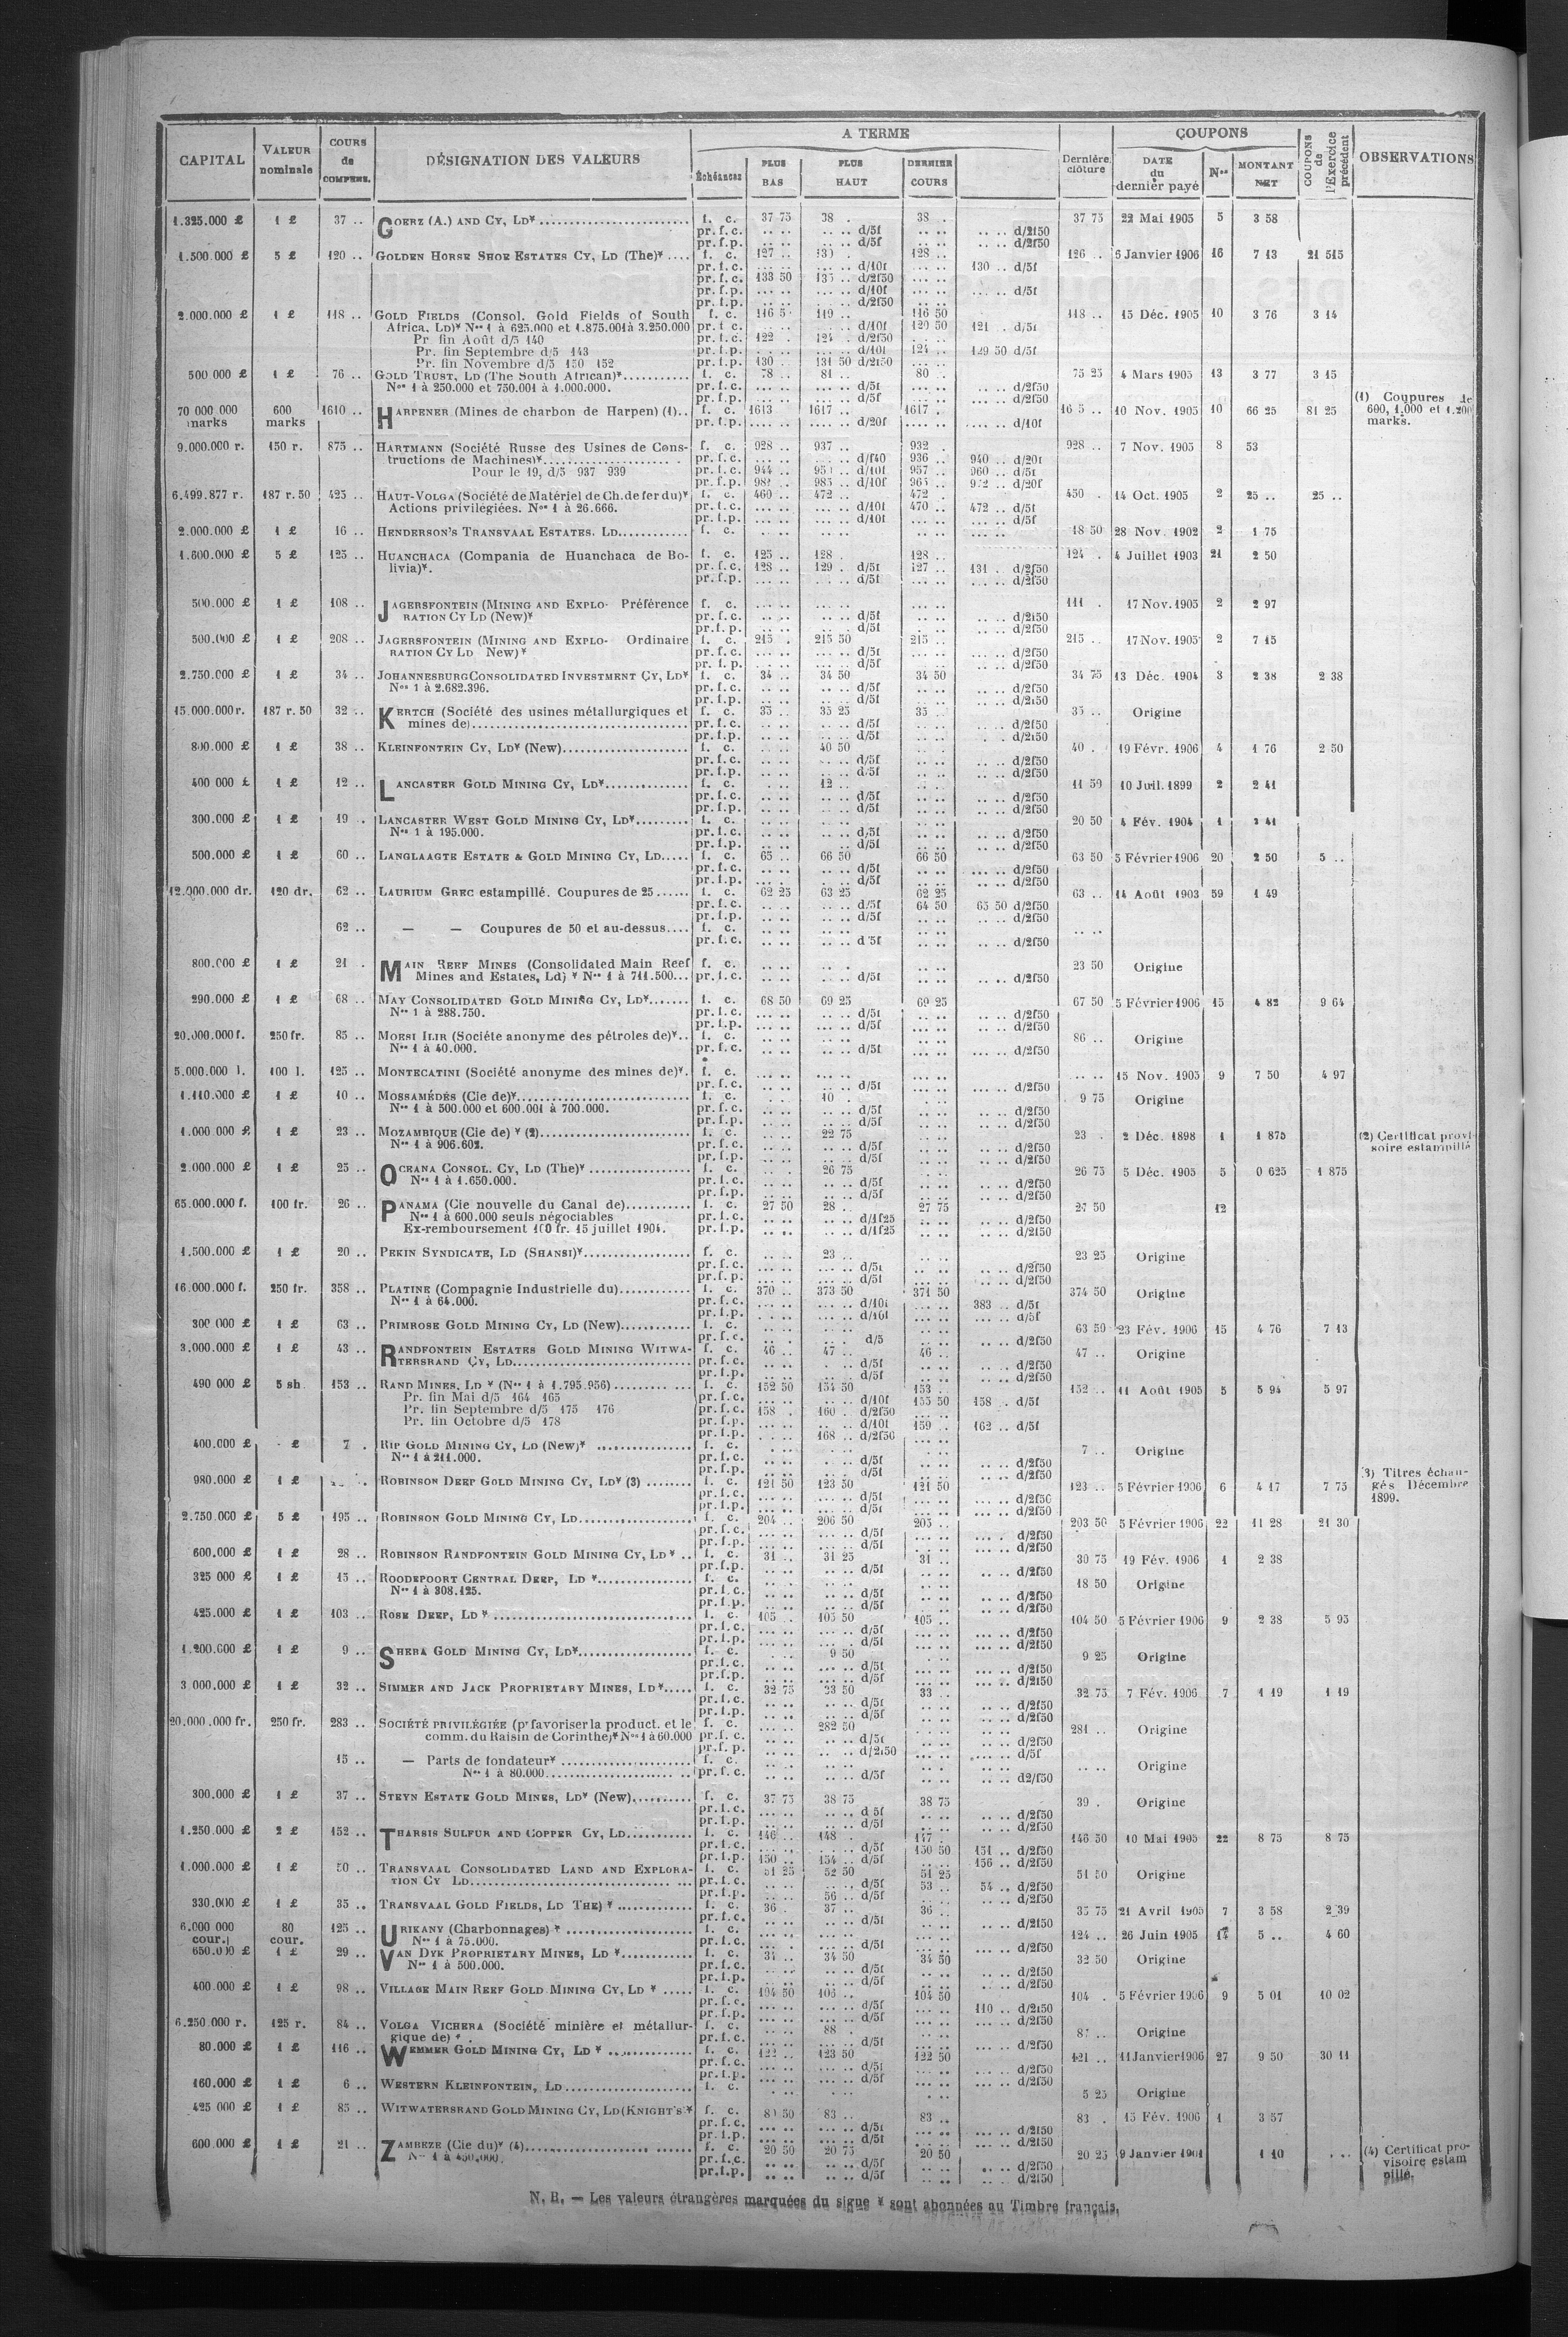 CAPITAL | VALEUR nominale | COURS de COMPENS. | DÉSIGNATION DES VALEURS | A TERME | Dernière clôture | COUPONS | COUPONS de l'Exercice précédent | OBSERVATIONS
Échéances | PLUS BAS | PLUS HAUT | DERNIER COURS | DATE du dernier payé | Nos | MONTANT NET
1.325.000 £ 1 £ 37 .. GOERZ (A.) AND CY, LD* f. c. 37 75 38 . 38 . 37 75 22 Mai 1905 5 3 58
pr. f. c. .. .. .. .. d/5f .. .. .. .. d/2f50
pr. f. p. .. .. .. .. d/5f .. .. .. .. d/2f50
1.500.000 £ 5 £ 120 .. GOLDEN HORSE SHOE ESTATES CY, LD (The)* f. c. 127 .. 130 . 128 .. 126 .. 6 Janvier 1906 16 7 13 21 515
pr. f. c. ... .. ... .. d/10f ... .. 130 .. d/5f
pr. f. c. 133 50 135 .. d/2f50
pr. f. p. ... .. ... .. d/10f ... .. ... .. d/5f
pr. f. p. ... .. ... .. d/2f50
2.000.000 £ 1 £ 118 .. GOLD FIELDS (Consol. Gold Fields of South f. c. 116 5 119 .. 116 50 118 .. 15 Déc. 1905 10 3 76 3 14
Africa, LD)* Nos 1 à 625.000 et 1.875.001 à 3.250.000 pr. f. c. d/10f 120 50 121 . d/5f
Pr fin Août d/5 140 pr. f. c. 122 . 124 . d/2f50
Pr. fin Septembre d/5 143 pr. f. p. d/10f 124 .. 129 50 d/5f
Pr. fin Novembre d/5 150 152 pr. f. p. 130 . 131 50 d/2f50
500 000 £ 1 £ 76 .. GOLD TRUST, LD (The South African)* f. c. 78 .. 81 .. 80 .. 75 25 4 Mars 1905 13 3 77 3 15
Nos 1 à 250.000 et 750.001 à 1.000.000. pr. f. c. d/5f d/2f50
pr. f. p. d/5f d/2f50
70 000 000 marks 600 marks 1610 .. HARPENER (Mines de charbon de Harpen) (1).. f. c. 1613 1617 .. 1617 . 10 Nov. 1905 10 66 25 81 25 (1) Coupures de 600, 1.000 et 1.200 marks.
pr. f. p. d/20f d/10f
9.000.000 r. 150 r. 875 .. HARTMANN (Société Russe des Usines de Cons- f. c. 928 .. 937 .. 932 . 928 .. 7 Nov. 1905 8 53
tructions de Machines)* pr. f. c. d/f40 936 .. 940 .. d/20f
Pour le 19, d/5 937 939 pr. f. c. 944 .. d/10f 957 .. 960 .. d/5f
pr. f. p. 985 .. d/10f 965 .. d/20f
6.499.877 r. 187 r. 50 425 .. HAUT-VOLGA (Société de Matériel de Ch. de fer du)* f. c. 460 .. 472 .. 472 . 450 . 14 Oct. 1905 2 25 .. 25 ..
Actions privilégiées. Nos 1 à 26.666. pr. f. c. d/10f 470 .. 472 .. d/5f
pr. f. p. d/10f d/5f
2.000.000 £ 1 £ 16 .. HENDERSON'S TRANSVAAL ESTATES, LD f. c. 18 50 28 Nov. 1902 2 1 75
1.600.000 £ 5 £ 125 .. HUANCHACA (Compania de Huanchaca de Bo- f. c. 125 .. 128 . 128 .. 124 . 4 Juillet 1903 21 2 50
livia)*. pr. f. c. 128 .. 129 . d/5f 127 .. 131 . d/2f50
pr. f. p. d/5f d/2f50
500.000 £ 1 £ 108 .. JAGERSFONTEIN (MINING AND EXPLO- Préférence f. c. 111 . 17 Nov. 1905 2 2 97
RATION CY LD (New)* pr. f. c. d/5f d/2f50
pr. f. p. d/5f d/2f50
500.000 £ 1 £ 208 .. JAGERSFONTEIN (MINING AND EXPLO- Ordinaire f. c. 215 . 215 50 215 .. 215 .. 17 Nov. 1905 2 7 15
RATION CY LD New)* pr. f. c. d/5f d/2f50
pr. f. p. d/5f d/2f50
2.750.000 £ 1 £ 34 .. JOHANNESBURG CONSOLIDATED INVESTMENT CY, LD* f. c. 34 .. 34 50 34 50 34 75 13 Déc. 1904 3 2 38 2 38
Nos 1 à 2.682.396. pr. f. c. d/5f d/2f50
pr. f. p. d/5f d/2f50
15.000.000 r. 187 r. 50 32 .. KERTCH (Société des usines métallurgiques et f. c. 35 .. 35 25 35 .. 35 .. Origine
mines de) pr. f. c. d/5f d/2f50
pr. f. p. d/5f d/2f50
800.000 £ 1 £ 38 .. KLEINFONTEIN CY, LD* (New) f. c. 40 50 40 . 19 Févr. 1906 4 1 76 2 50
pr. f. c. d/5f d/2f50
pr. f. p. d/5f d/2f50
400 000 £ 1 £ 12 .. LANCASTER GOLD MINING CY, LD* f. c. 12 .. 11 50 10 Juil. 1899 2 2 41
pr. f. c. d/5f d/2f50
pr. f. p. d/5f d/2f50
300.000 £ 1 £ 19 . LANCASTER WEST GOLD MINING CY, LD* f. c. 20 50 4 Fév. 1904 1
Nos 1 à 195.000. pr. f. c. d/5f d/2f50
pr. f. p. d/5f d/2f50
500.000 £ 1 £ 60 .. LANGLAAGTE ESTATE & GOLD MINING CY, LD f. c. 65 .. 66 50 66 50 63 50 5 Février 1906 20 2 50 5 ..
pr. f. c. d/5f d/2f50
pr. f. p. d/5f d/2f50
12.000.000 dr. 120 dr. 62 .. LAURIUM GREC estampillé. Coupures de 25 f. c. 62 25 63 25 62 25 63 .. 14 Août 1903 59 1 49
pr. f. c. d/5f 64 50 65 50 d/2f50
pr. f. p. d/5f d/2f50
62 .. — — Coupures de 50 et au-dessus f. c.
pr. f. c. d'5f d/2f50
800.000 £ 1 £ 21 . MAIN REEF MINES (Consolidated Main Reef f. c. 23 50 Origine
Mines and Estates, Ld) * Nos 1 à 711.500 pr. f. c. d/5f d/2f50
290.000 £ 1 £ 68 .. MAY CONSOLIDATED GOLD MINING CY, LD* f. c. 68 50 69 25 69 25 67 50 5 Février 1906 15 4 82 9 64
Nos 1 à 288.750. pr. f. c. d/5f d/2f50
pr. f. p. d/5f d/2f50
20.000.000 f. 250 fr. 85 .. MORSI ILIR (Société anonyme des pétroles de)* f. c. 86 .. Origine
Nos 1 à 40.000. pr. f. c. d/5f d/2f50
5.000.000 l. 100 l. 125 .. MONTECATINI (Société anonyme des mines de)* f. c. 15 Nov. 1905 9 7 50 4 97
pr. f. c. d/5f d/2f50
1.110.000 £ 1 £ 10 .. MOSSAMÉDÉS (Cie de)* f. c. 10 . 9 75 Origine
Nos 1 à 500.000 et 600.001 à 700.000. pr. f. c. d/5f d/2f50
pr. f. p. d/5f d/2f50
1.000 000 £ 1 £ 23 .. MOZAMBIQUE (Cie de) * (2) f. c. 22 75 23 . 2 Déc. 1898 1 1 875 (2) Certificat provi-
Nos 1 à 906.602. pr. f. c. d/5f d/2f50 soire estampillé
pr. f. p. d/5f d/2f50
2.000.000 £ 1 £ 25 .. OCEANA CONSOL. CY, LD (The)* f. c. 26 75 26 75 5 Déc. 1905 5 0 625 1 875
Nos 1 à 1.650.000. pr. f. c. d/5f d/2f50
pr. f. p. d/5f d/2f50
65.000.000 f. 100 fr. 26 .. PANAMA (Cie nouvelle du Canal de) f. c. 27 50 28 .. 27 75 27 50 12
Nos 1 à 600.000 seuls négociables pr. f. c. d/1f25 d/2f50
Ex-remboursement 100 fr. 15 juillet 1904. pr. f. p. d/1f25 d/2f50
1.500.000 £ 1 £ 20 .. PEKIN SYNDICATE, LD (SHANSI)* f. c. 23 .. 23 25 Origine
pr. f. c. d/5f d/2f50
pr. f. p. d/5f d/2f50
16.000.000 f. 250 fr. 358 .. PLATINE (Compagnie Industrielle du) f. c. 370 .. 373 50 371 50 374 50 Origine
Nos 1 à 64.000. pr. f. c. d/10f 383 .. d/5f
pr. f. p. d/10f d/5f
300 000 £ 1 £ 63 .. PRIMROSE GOLD MINING CY, LD (New) f. c. 63 50 23 Fév. 1906 15 4 76 7 13
pr. f. c. d/5 d/2f50
3.000.000 £ 1 £ 43 .. RANDFONTEIN ESTATES GOLD MINING WITWA- f. c. 46 .. 47 .. 46 .. 47 .. Origine
TERSRAND CY, LD pr. f. c. d/5f d/2f50
pr. f. p. d/5f d/2f50
490 000 £ 5 sh 153 .. RAND MINES, LD * (Nos 1 à 1.795.956) f. c. 152 50 154 50 153 .. 152 .. 11 Août 1905 5 5 94 5 97
Pr. fin Mai d/5 164 165 pr. f. c. d/10f 155 50 158 . d/5f
Pr. fin Septembre d/5 175 176 pr. f. c. 158 . 160 . d/2f50
Pr. fin Octobre d/5 178 pr. f. p. d/10f 159 .. 162 .. d/5f
pr. f. p. 168 .. d/2f50
400.000 £ £ 7 . RIP GOLD MINING CY, LD (New)* f. c. 7 .. Origine
Nos 1 à 211.000. pr. f. c. d/5f d/2f50
pr. f. p. d/5f d/2f50
980.000 £ 1 £ ROBINSON DEEP GOLD MINING CY, LD* (3) f. c. 121 50 123 50 121 50 123 .. 5 Février 1906 6 4 17 7 75 (3) Titres échan-
pr. f. c. d/5f d/2f50 gés Décembre
pr. f. p. d/5f d/2f50 1899.
2.750.000 £ 5 £ 195 .. ROBINSON GOLD MINING CY, LD f. c. 204 .. 206 50 205 .. 203 50 5 Février 1906 22 11 28 21 30
pr. f. c. d/5f d/2f50
pr. f. p. d/5f d/2f50
600.000 £ 1 £ 28 .. ROBINSON RANDFONTEIN GOLD MINING CY, LD * f. c. 31 .. 31 25 31 .. 30 75 19 Fév. 1906 1 2 38
pr. f. p. d/5f d/2f50
325 000 £ 1 £ 15 .. ROODEPOORT CENTRAL DEEP, LD * f. c. 18 50 Origine
Nos 1 à 308.125. pr. f. c. d/5f d/2f50
pr. f. p. d/5f d/2f50
425.000 £ 1 £ 103 .. ROSE DEEP, LD * f. c. 105 .. 105 50 105 .. 104 50 5 Février 1906 9 2 38 5 95
pr. f. c. d/5f d/2f50
pr. f. p. d/5f d/2f50
1.200.000 £ 1 £ 9 .. SHEBA GOLD MINING CY, LD* f. c. 9 50 9 25 Origine
pr. f. c. d/5f d/2f50
pr. f. p. d/5f d/2f50
3.000.000 £ 1 £ 32 .. SIMMER AND JACK PROPRIETARY MINES, LD* f. c. 32 75 33 50 33 .. 32 75 7 Fév. 1906 7 1 19 1 19
pr. f. c. d/5f d/2f50
pr. f. p. d/5f d/2f50
20.000.000 fr. 250 fr. 283 .. SOCIÉTÉ PRIVILÉGIÉE (pr favoriser la product. et le f. c. 282 50 281 .. Origine
comm. du Raisin de Corinthe)* Nos 1 à 60.000 pr. f. c. d/5f d/2f50
pr. f. p. d/2f50 d/5f
15 .. — Parts de fondateur* f. c. Origine
Nos 1 à 80.000 pr. f. c. d/5f d2/f50
300.000 £ 1 £ 37 .. STEYN ESTATE GOLD MINES, LD* (New) f. c. 37 75 38 75 38 75 39 . Origine
pr. f. c. d 5f d/2f50
pr. f. p. d/5f d/2f50
1.250.000 £ 2 £ 152 .. THARSIS SULFUR AND COPPER CY, LD f. c. 146 .. 148 . 147 . 146 50 10 Mai 1905 22 8 75 8 75
pr. f. c. d/5f 150 50 151 .. d/2f50
pr. f. p. 150 .. 154 .. d/5f 156 .. d/2f50
1.000.000 £ 1 £ 50 .. TRANSVAAL CONSOLIDATED LAND AND EXPLORA- f. c. 51 25 52 50 51 25 51 50 Origine
TION CY LD pr. f. c. d/5f 53 .. 54 .. d/2f50
pr. f. p. 56 .. d/5f d/2f50
330.000 £ 1 £ 35 .. TRANSVAAL GOLD FIELDS, LD THE) * f. c. 36 . 37 .. 36 .. 35 75 21 Avril 1905 7 3 58 2 39
pr. f. c. d/5f d/2f50
6.000 000 cour. 80 cour. 125 .. URIKANY (Charbonnages) * f. c. 124 .. 26 Juin 1905 5 .. 4 60
Nos 1 à 75.000. pr. f. c. d/5f d/2f50
650.000 £ 1 £ 29 .. VAN DYK PROPRIETARY MINES, LD * f. c. 34 .. 34 50 34 50 32 50 Origine
Nos 1 à 500.000. pr. f. c. d/5f d/2f50
pr. f. p. d/5f d/2f50
400.000 £ 1 £ 98 .. VILLAGE MAIN REEF GOLD MINING CY, LD * f. c. 104 50 104 50 104 . 5 Février 1906 9 5 01 10 02
pr. f. c. d/5f 110 .. d/2f50
pr. f. p. d/5f d/2f50
6.250.000 r. 125 r. 84 .. VOLGA VICHERA (Société minière et métallur- f. c. 88 . 87 .. Origine
gique de) * . pr. f. c. d/5f d/2f50
80.000 £ 1 £ 116 .. WEMMER GOLD MINING CY, LD * f. c. 122 .. 123 50 122 50 121 .. 11 Janvier 1906 27 9 50 30 11
pr. f. c. d/5f d/2f50
pr. f. p. d/5f d/2f50
160.000 £ 1 £ 6 .. WESTERN KLEINFONTEIN, LD f. c. 5 25 Origine
425 000 £ 1 £ 85 .. WITWATERSRAND GOLD MINING CY, LD (KNIGHT'S * f. c. 83 .. 83 .. 83 . 15 Fév. 1906 1 3 57
pr. f. c. d/5f d/2f50
pr. f. p. d/5f d/2f50
600.000 £ 1 £ 21 .. ZAMBEZE (Cie du)* (4) f. c. 20 50 20 75 20 50 20 25 9 Janvier 1901 1 10 (4) Certificat pro-
Nos 1 à 450.000. pr. f. c. d/5f d/2f50 visoire estam
pr. f. p. d/5f d/2f50 pillé.
N. B. — Les valeurs étrangères marquées du signe * sont abonnées au Timbre français.